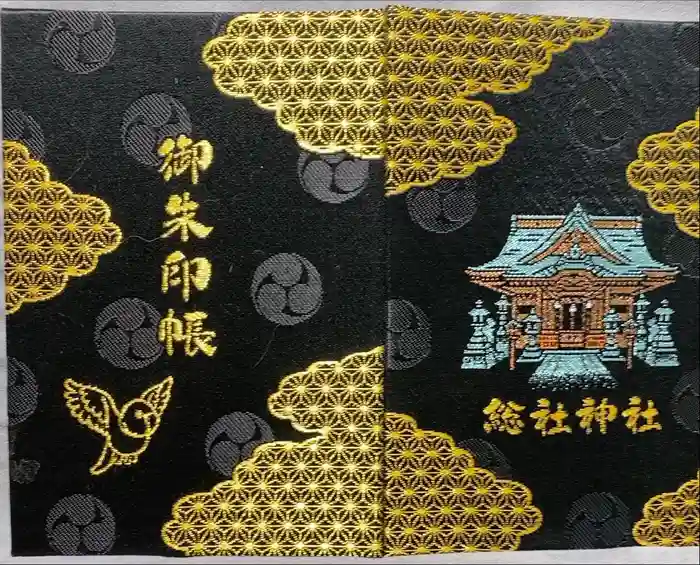 御朱印帳
総社神社